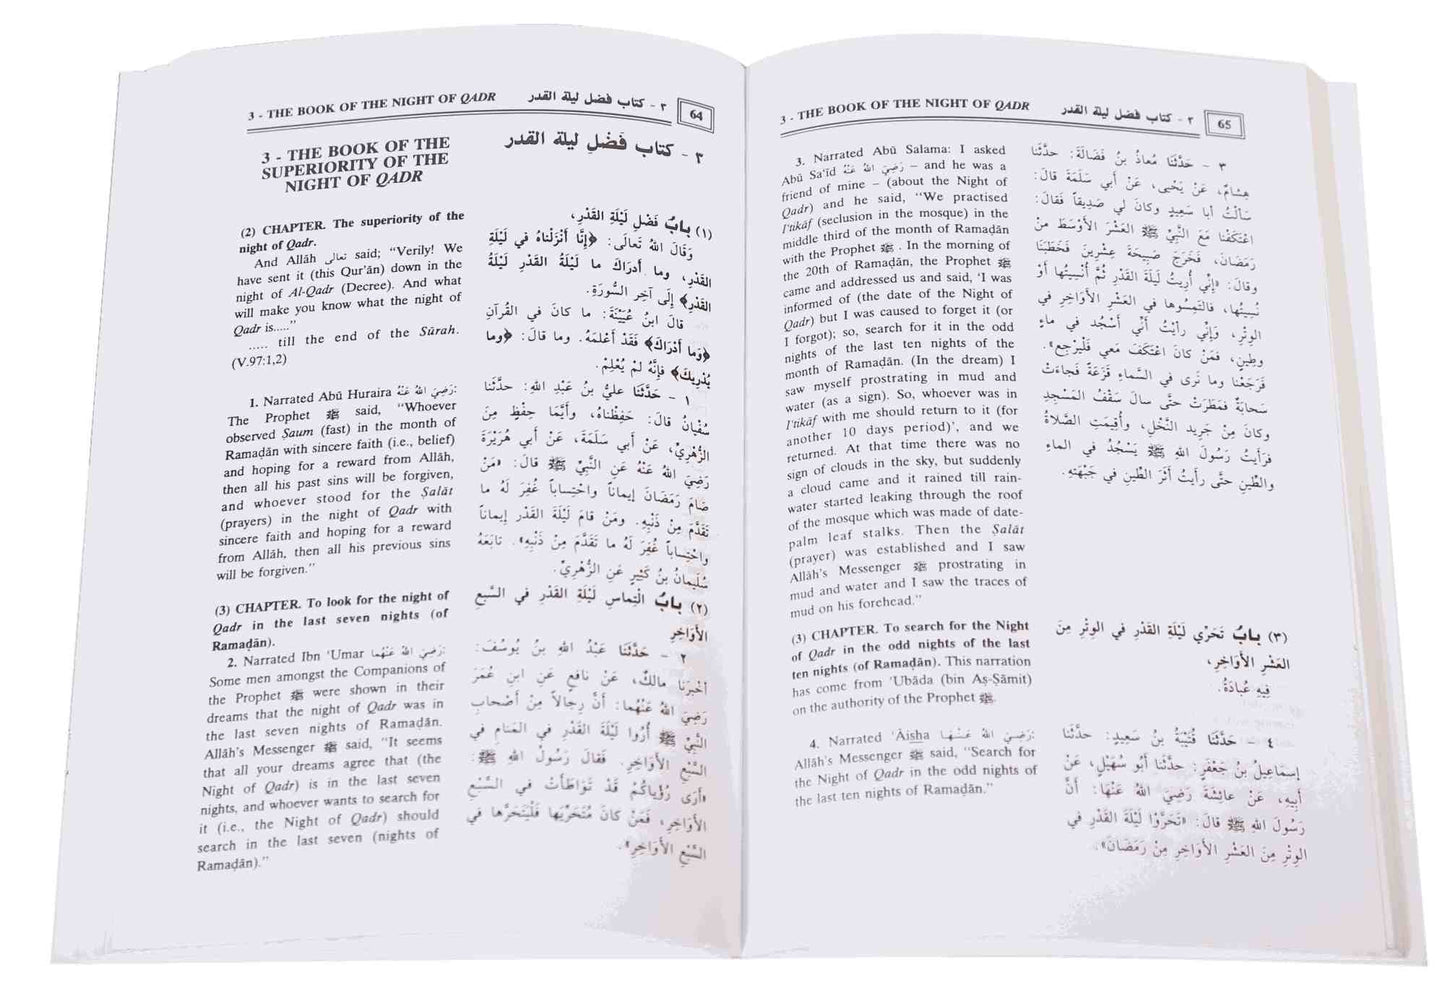 3 - THE BOOK OF THE NIGHT OF QADR
٣ - كتاب فضل ليلة القدر
64
3 - THE BOOK OF THE
SUPERIORITY OF THE
NIGHT OF QADR
(2) CHAPTER. The superiority of the
night of Qadr.
And Allāh تعالى said; “Verily! We
have sent it (this Qur’ān) down in the
night of Al-Qadr (Decree). And what
will make you know what the night of
Qadr is.....”
..... till the end of the Sūrah.
(V.97:1,2)
1. Narrated Abū Huraira رَضِيَ اللهُ عَنْهُ:
The Prophet ﷺ said, “Whoever
observed Ṣaum (fast) in the month of
Ramaḍān with sincere faith (i.e., belief)
and hoping for a reward from Allāh,
then all his past sins will be forgiven,
and whoever stood for the Ṣalāt
(prayers) in the night of Qadr with
sincere faith and hoping for a reward
from Allāh, then all his previous sins
will be forgiven.”
(3) CHAPTER. To look for the night of
Qadr in the last seven nights (of
Ramaḍān).
2. Narrated Ibn ‘Umar رَضِيَ اللهُ عَنْهُما:
Some men amongst the Companions of
the Prophet ﷺ were shown in their
dreams that the night of Qadr was in
the last seven nights of Ramaḍān.
Allāh’s Messenger ﷺ said, “It seems
that all your dreams agree that (the
Night of Qadr) is in the last seven
nights, and whoever wants to search for
it (i.e., the Night of Qadr) should
search in the last seven (nights of
Ramaḍān).”
٣ - كتاب فَضْلِ ليلة القدر
(١) بابُ فَضْلِ لَيْلَةِ القَدْرِ،
وَقَالَ اللهُ تَعَالَى: ﴿إِنَّا أَنْزَلْنَاهُ في لَيْلَةِ
القَدْرِ، وما أَدرَاكَ ما لَيْلَةُ القَدْرِ لَيْلَةُ
القَدْرِ﴾ إلَى آخِرِ السُّورَةِ.
قال ابنُ عُيَيْنَةَ: ما كانَ في القُرآنِ
﴿وَما أَدْرَاكَ﴾ فَقَدْ أَعْلَمَهُ. وما قال: ﴿وما
يُدْرِيكَ﴾ فإنَّهُ لَمْ يُعْلِمْ.
١ - حَدَّثَنَا عليُّ بنُ عَبْدِ اللهِ: حدَّثَنا
سُفْيَانُ قالَ: حَفِظْنَاهُ، وأَيَّمَا حِفْظٍ مِنَ
الزُّهْرِيِّ، عَنْ أبي سَلَمَةَ، عَنْ أبي هُرَيْرَةَ
رَضِيَ اللهُ عَنْهُ عَنِ النَّبِيِّ ﷺ قالَ: «مَنْ
صَامَ رَمَضَانَ إيماناً واحْتِساباً غُفِرَ لَهُ ما
تَقَدَّمَ مِنْ ذَنْبِهِ. ومَنْ قامَ لَيْلَةَ القَدْرِ إيماناً
واحْتِساباً غُفِرَ لَهُ ما تَقَدَّمَ مِنْ ذَنْبِهِ». تابَعَهُ
سُلَيمانُ بنُ كَثِيرٍ عَنِ الزُّهْرِيِّ.
(٢) بابُ الْتِماسِ لَيْلَةِ القَدْرِ في السَّبْعِ
الأَوَاخِرِ
٢ - حدَّثَنا عَبْدُ اللهِ بنُ يُوسُفَ:
أخْبَرَنا مالكٌ، عَنْ نافعٍ عَنِ ابنِ عُمَرَ
رَضِيَ اللهُ عَنْهُما: أنَّ رِجالاً مِنْ أصْحابِ
النَّبِيِّ ﷺ أُرُوا لَيْلَةَ القَدْرِ في المَنَامِ في
السَّبْعِ الأَوَاخِرِ. فَقالَ رَسُولُ اللهِ ﷺ:
«أرَى رُؤْيَاكُمْ قَدْ تَوَاطَأَتْ في السَّبْعِ
الأَوَاخِرِ، فَمَنْ كانَ مُتَحَرِّيَها فَلْيَتَحَرَّها في
السَّبْعِ الأَوَاخِرِ».
3 - THE BOOK OF THE NIGHT OF QADR
٣ - كتاب فضل ليلة القدر
65
3. Narrated Abū Salama: I asked
Abū Sa‘īd رَضِيَ اللهُ عَنْهُ – and he was a
friend of mine – (about the Night of
Qadr) and he said, “We practised
I‘tikāf (seclusion in the mosque) in the
middle third of the month of Ramaḍān
with the Prophet ﷺ . In the morning of
the 20th of Ramaḍān, the Prophet ﷺ
came and addressed us and said, ‘I was
informed of (the date of the Night of
Qadr) but I was caused to forget it (or
I forgot); so, search for it in the odd
nights of the last ten nights of the
month of Ramaḍān. (In the dream) I
saw myself prostrating in mud and
water (as a sign). So, whoever was in
I‘tikāf with me should return to it (for
another 10 days period)’, and we
returned. At that time there was no
sign of clouds in the sky, but suddenly
a cloud came and it rained till rain-
water started leaking through the roof
of the mosque which was made of date-
palm leaf stalks. Then the Ṣalāt
(prayer) was established and I saw
Allāh’s Messenger ﷺ prostrating in
mud and water and I saw the traces of
mud on his forehead.”
(3) CHAPTER. To search for the Night
of Qadr in the odd nights of the last
ten nights (of Ramaḍān). This narration
has come from ‘Ubāda (bin Aṣ-Ṣāmit)
on the authority of the Prophet ﷺ.
4. Narrated ‘Āisha رَضِيَ اللهُ عَنْها:
Allāh’s Messenger ﷺ said, “Search for
the Night of Qadr in the odd nights of
the last ten nights of Ramaḍān.”
٣ - حَدَّثَنَا مُعاذُ بنُ فَضَالَةَ: حدَّثَنا
هِشامٌ، عَنْ يَحْيى، عَنْ أبي سَلَمَةَ قالَ:
سألْتُ أبا سَعِيدٍ وكانَ لي صَدِيقاً فَقالَ:
اعْتَكَفْنا مَعَ النَّبِيِّ ﷺ العَشْرَ الأَوْسَطَ مِنْ
رَمَضَانَ، فَخَرَجَ صَبِيحَةَ عِشْرِينَ فَخَطَبَنا
وقالَ: «إنِّي أُرِيتُ لَيْلَةَ القَدْرِ ثُمَّ أُنْسِيتُها أوْ
نُسِّيتُها، فالتَمِسُوها في العَشْرِ الأوَاخِرِ في
الوِتْرِ، وَإنِّي رأيْتُ أنِّي أسْجُدُ في ماءٍ
وطِينٍ، فَمَنْ كانَ اعْتَكَفَ مَعي فَلْيَرْجِعْ».
فَرَجَعْنا وما نَرى في السَّماءِ قَزَعَةً فَجاءَتْ
سَحابَةٌ فمَطَرَتْ حتَّى سالَ سَقْفُ المَسْجِدِ
وكانَ مِنْ جَرِيدِ النَّخْلِ، وأُقِيمَتِ الصَّلاةُ
فرأيتُ رَسُولَ اللهِ ﷺ يَسْجُدُ في الماءِ
والطِّينِ حتَّى رأيتُ أثَرَ الطِّينِ في جَبْهَتِهِ.
(٣) بابُ تَحَرِّي لَيْلَةِ القَدْرِ في الوِتْرِ مِنَ
العَشْرِ الأوَاخِرِ،
فِيهِ عُبَادَةُ.
٤ - حَدَّثَنَا قُتَيْبَةُ بنُ سَعِيدٍ: حدَّثَنا
إسماعِيلُ بنُ جَعْفَرٍ: حدَّثَنا أبُو سُهَيْلٍ، عَنْ
أبِيهِ، عَنْ عائِشَةَ رَضِيَ اللهُ عَنْهَا: أنَّ
رَسُولَ اللهِ ﷺ قالَ: «تَحَرَّوْا لَيْلَةَ القَدْرِ في
الوِتْرِ مِنَ العَشْرِ الأَوَاخِرِ مِنْ رَمَضَانَ».